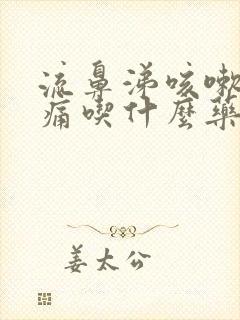 流鼻涕咳嗽
痛喫什麼藥
姜太公